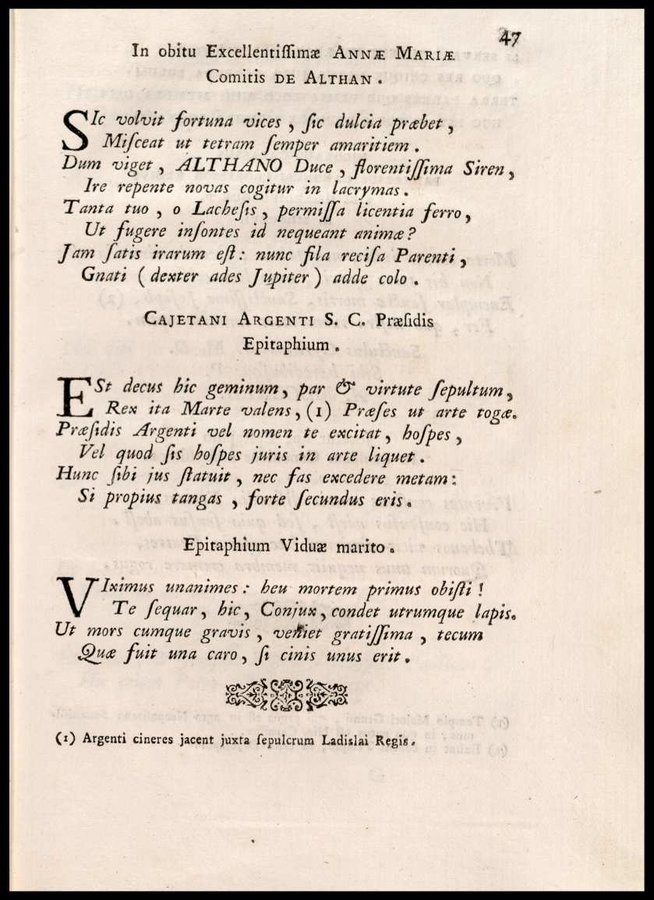 47
In obitu Excellentiſſimæ ANNÆ MARIÆ
Comitis DE ALTHAN.
SIc volvit fortuna vices, ſic dulcia præbet,
Miſceat ut tetram ſemper amaritiem.
Dum viget, ALTHANO Duce, florentiſſima Siren,
Ire repente novas cogitur in lacrymas.
Tanta tuo, o Lacheſis, permiſſa licentia ferro,
Ut fugere inſontes id nequeant animæ?
Jam ſatis irarum eſt: nunc fila reciſa Parenti,
Gnati (dexter ades Jupiter) adde colo.
CAJETANI ARGENTI S. C. Præſidis
Epitaphium.
ESt decus hic geminum, par & virtute ſepultum,
Rex ita Marte valens, (1) Præſes ut arte togæ.
Præſidis Argenti vel nomen te excitat, hoſpes,
Vel quod ſis hoſpes juris in arte liquet.
Hunc ſibi jus ſtatuit, nec fas excedere metam:
Si propius tangas, forte ſecundus eris.
Epitaphium Viduæ marito.
VIximus unanimes: heu mortem primus obiſti!
Te ſequar, hic, Conjux, condet utrumque lapis.
Ut mors cumque gravis, veniet gratiſſima, tecum
Quæ fuit una caro, ſi cinis unus erit.
(1) Argenti cineres jacent juxta ſepulcrum Ladislai Regis.